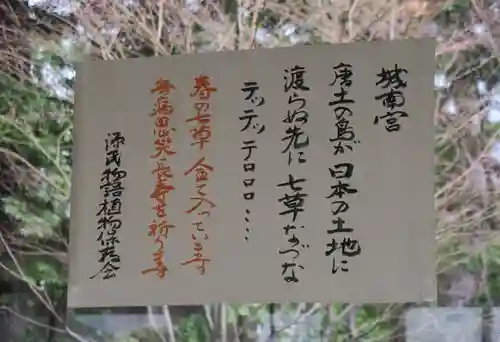 城南宮
唐土の鳥が日本の土地に
渡らぬ先に 七草なづな
テッテッテロロロ・・・
春の七草 全て入っています
無病息災・長寿を祈ります
源氏物語植物保存会